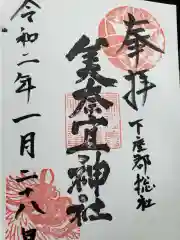 奉拝
下座郡惣社
美奈宜神社
令和二年一月二十八日